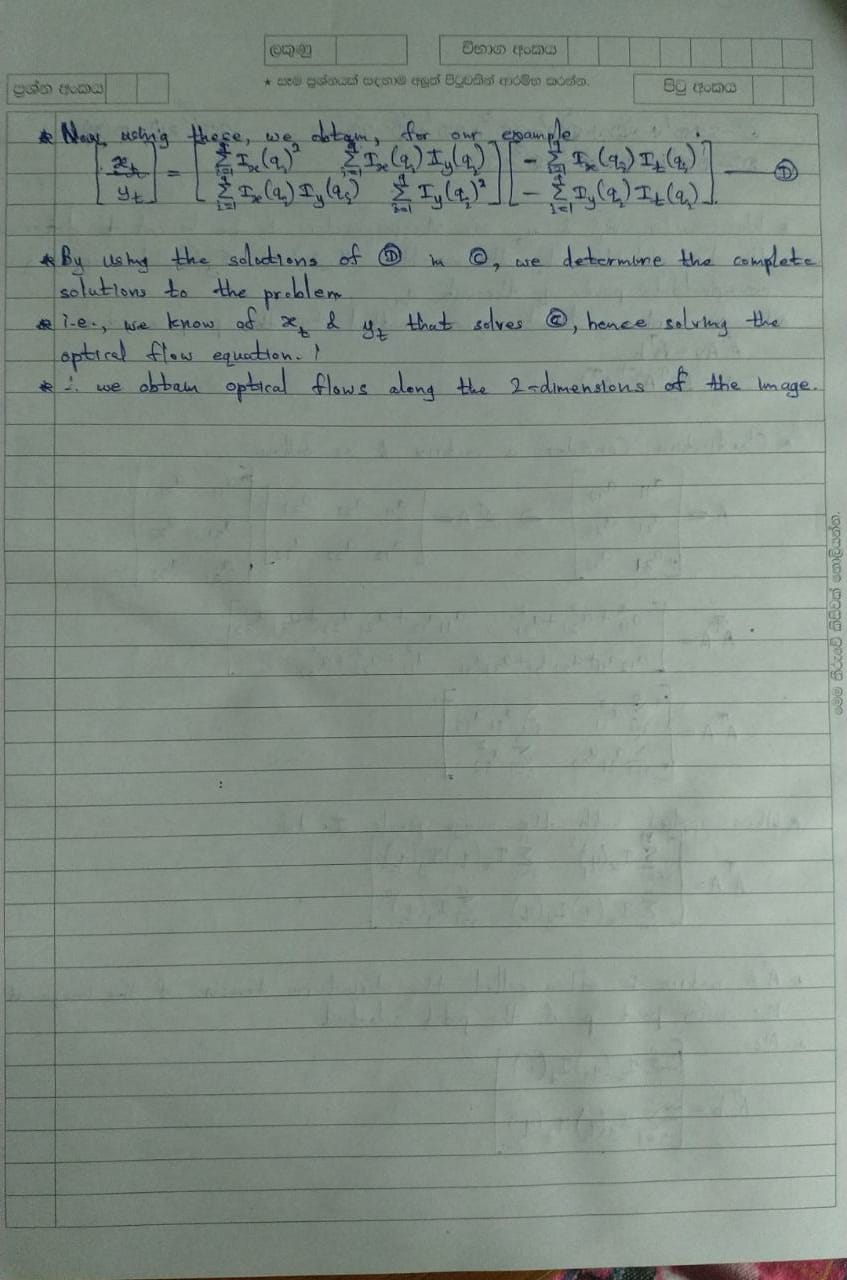 ලකුණු
විභාග අංකය
ප්‍රශ්න අංකය
★ සෑම ප්‍රශ්නයක් සඳහාම අලුත් පිටුවකින් ආරම්භ කරන්න.
පිටු අංකය
* Now, using these, we obtain, for our example
[x_t / y_t] = [Σ_{i=1}^{9} I_x(q_i)² Σ_{i=1}^{9} I_x(q_i) I_y(q_i)] [- Σ_{i=1}^{9} I_x(q_i) I_t(q_i)] — Ⓓ
[Σ_{i=1}^{9} I_x(q_i) I_y(q_i) Σ_{i=1}^{9} I_y(q_i)²] [- Σ_{i=1}^{9} I_y(q_i) I_t(q_i)]
* By using the solutions of Ⓓ in Ⓒ, we determine the complete
solutions to the problem
* i.e., we know of x_t & y_t that solves Ⓒ, hence solving the
optical flow equation.
* ∴ we obtain optical flows along the 2-dimensions of the image.
මෙම තීරුවේ කිසිවක් නොලියන්න.